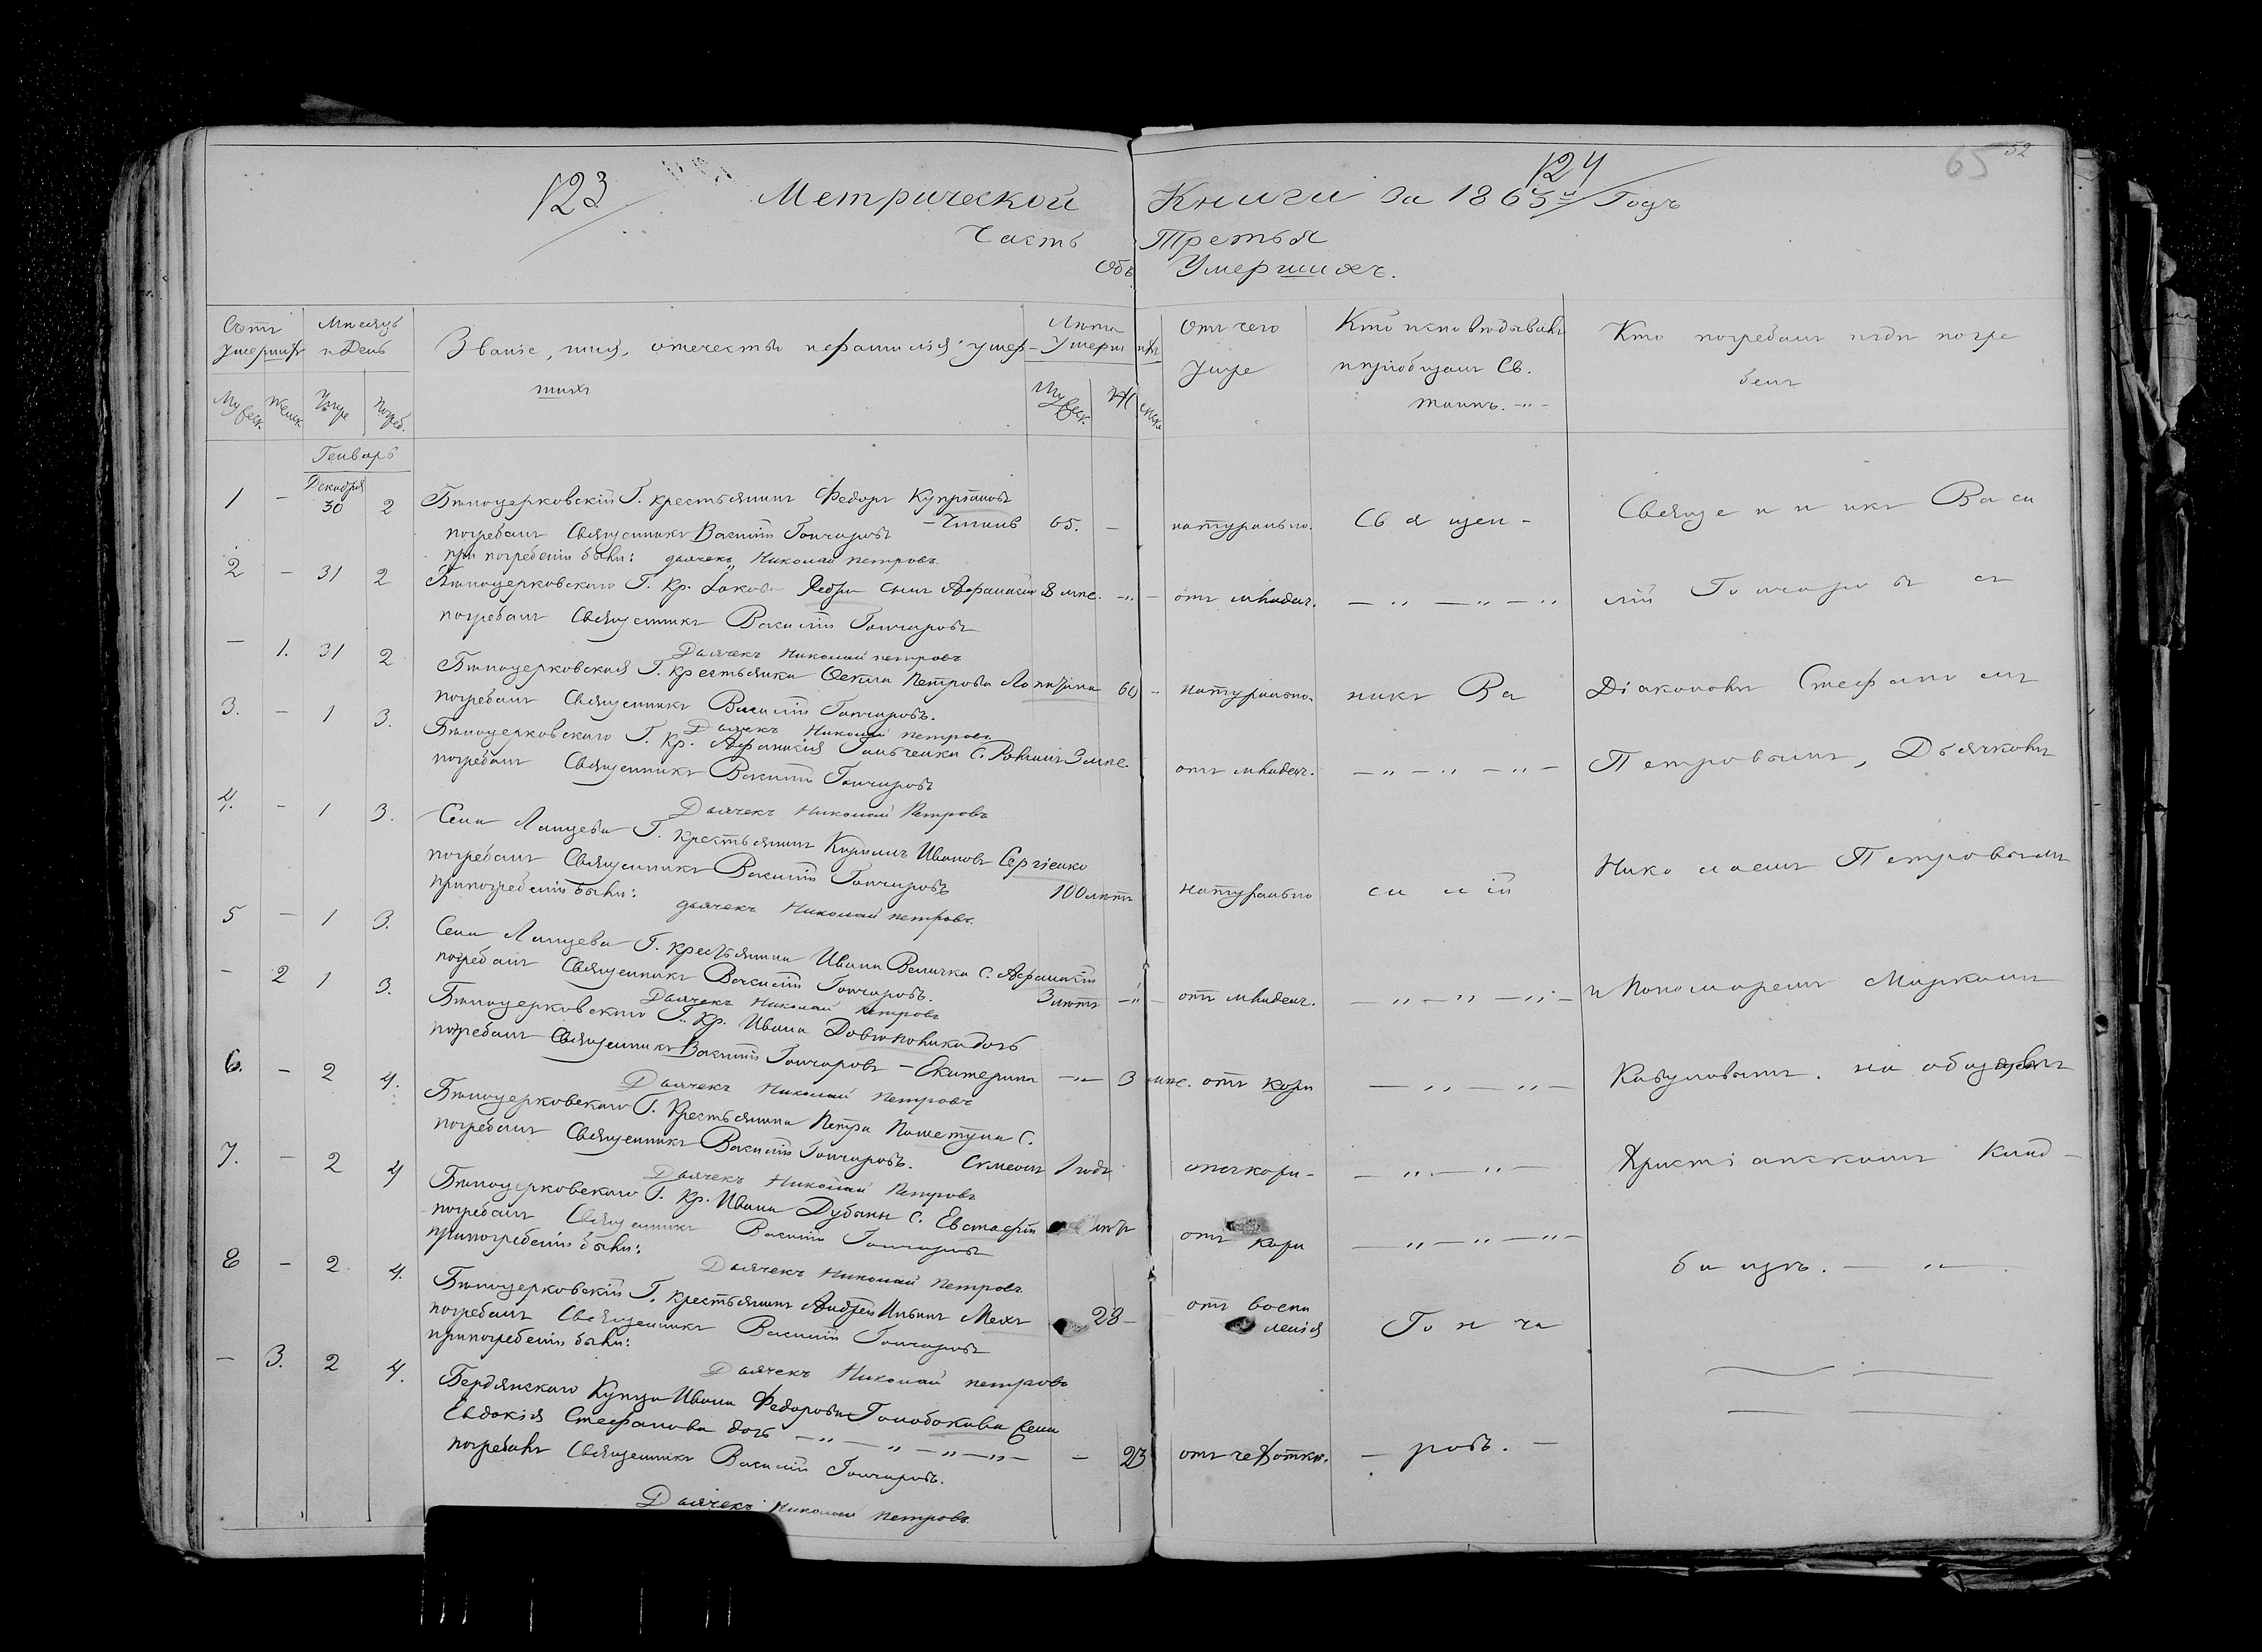 123
124
65
52
Метрической Книги за 1865й Годъ
Часть Третья
Объ Умершихъ.
Счетъ умершихъ
Мужеск.
Женск.
Мѣсяцъ и День
Умер
Погреб.
Званіе, имя, отечество и фамилія умер-
шихъ
Лѣта Умершихъ
Мужеск.
Женска
Отъ чего
умре
Кто исповѣдывалъ
и пріобщалъ Св.
таинъ. -"-
Кто погребалъ и гдѣ погре
бенъ
Генварь
Декабря
1 - 30 2 Бѣлоцерковскій Г. крестьянинъ Федоръ Купріановъ
65. - натурально. Священ-
погребалъ Священникъ Василій Гончаровъ
при погребеніи были: дьячекъ Николай Петровъ.
Священникъ Васи
2 - 31 2 Бѣлоцерковскаго Г. кр. Якова сынъ Афанасій 8 мѣс. -"- отъ младен. -"-"-"
погребалъ Священникъ Василій Гончаровъ
Дьячекъ Николай Петровъ
лій Гончаровъ съ
- 1. 31 2 Бѣлоцерковская Г. крестьянка Ѳекла Петрова 60 - натурально. никъ Ва
погребалъ Священникъ Василій Гончаровъ.
Дьячекъ Николай Петровъ
Діакономъ Стефаномъ
3. - 1 3. Бѣлоцерковскаго Г. кр. Афанасія Гальченка С. 3 мѣс. отъ младен. -"-"-"-
погребалъ Священникъ Василій Гончаровъ
Дьячекъ Николай Петровъ
Петровымъ, Дьячкомъ
4. - 1 3. Села Ланцева Г. крестьянинъ Кирилъ Ивановъ Сергіенко
погребалъ Священникъ Василій Гончаровъ 100 лѣтъ натурально силій
при погребеніи были: дьячекъ Николай Петровъ.
Николаемъ Петровымъ
5 - 1 3. Села Ланцева Г. крестьянина Ивана Величка С. Афанасій
погребалъ Священникъ Василій Гончаровъ. 3 лѣтъ -"- отъ младен. -"-"-"-
Дьячекъ Николай Петровъ
и Пономаремъ Маркомъ
- 2 1 3. Бѣлоцерковскаго Г. кр. Ивана дочь
погребалъ Священникъ Василій Гончаровъ - Екатерина -"- 3 мѣс. отъ кори -"-"-
Дьячекъ Николай Петровъ
на общемъ
6. - 2 4. Бѣлоцерковскаго Г. Крестьянина Петра С.
погребалъ Священникъ Василій Гончаровъ. Симеонъ 1 годъ от кори- -"-"-
Дьячекъ Николай Петровъ
Христіанскомъ Клад-
7. - 2 4 Бѣлоцерковскаго Г. кр. Ивана Дубины С. Евстафій лѣтъ отъ кори -"-"-"-
погребалъ Священникъ Василій Гончаровъ
при погребеніи были: Дьячекъ Николай Петровъ
бищѣ. -"-
8 - 2 4. Бѣлоцерковскій Г. крестьянинъ Андрей Ильинъ Мехъ 28 - отъ воспаленія Гонча
погребалъ Священникъ Василій Гончаровъ
при погребеніи были: Дьячекъ Николай Петровъ
- 3. 2 4. Бердянскаго Купца Ивана Федорова
Евдокія Стефанова дочь -"-"-"-"-
погребалъ Священникъ Василій Гончаровъ. - 23 отъ чахотки. - ровъ. -
Дьячекъ Николай Петровъ.